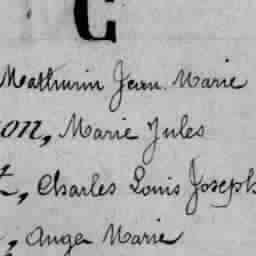 C
Mathurin Jean Marie
on, Marie Jules
t, Charles Louis Joseph
, Ange Marie